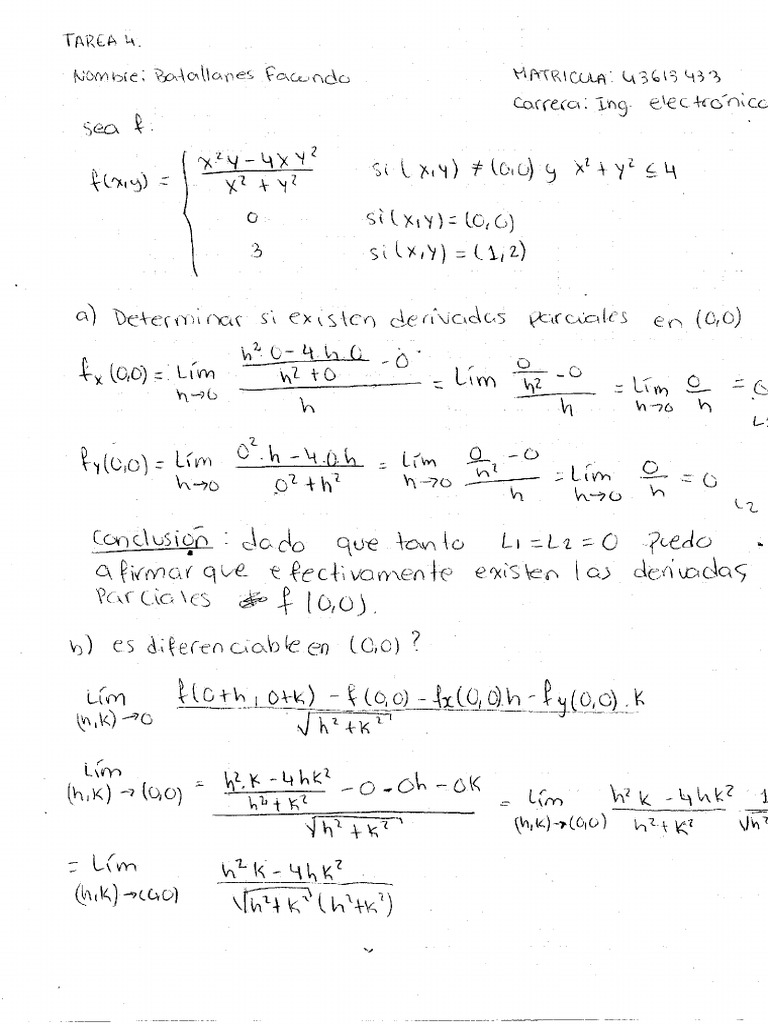 TAREA 4.
Nombre: Batallanes Facundo
MATRICULA: 43613433
Carrera: Ing. electrónica
sea f:
f(x,y) = { (x²y - 4xy²)/(x² + y²) si (x,y) ≠ (0,0) y x² + y² ≤ 4
0 si (x,y) = (0,0)
3 si (x,y) = (1,2)
a) Determinar si existen derivadas parciales en (0,0)
fx (0,0) = Lím h→0 ((h².0 - 4.h.0)/(h² + 0) - 0)/h = Lím (0/h² - 0)/h = Lím h→0 0/h = 0
fy (0,0) = Lím h→0 (0².h - 4.0.h)/(0² + h²) = Lím h→0 (0/h² - 0)/h = Lím h→0 0/h = 0
L2
Conclusión: dado que tanto L1 = L2 = 0 Puedo
afirmar que efectivamente existen las derivadas
Parciales f (0,0).
b) es diferenciable en (0,0)?
Lím (h,k)→0 (f(0+h, 0+k) - f(0,0) - fx(0,0)h - fy(0,0).k)/√(h² + k²)
Lím (h,k)→(0,0) = ((h².k - 4hk²)/(h² + k²) - 0 - 0h - 0k)/√(h² + k²) = Lím (h,k)→(0,0) (h²k - 4hk²)/(h² + k²) 1/√h²
= Lím (h,k)→(0,0) (h²k - 4hk²)/(√(h² + k²) (h² + k²))